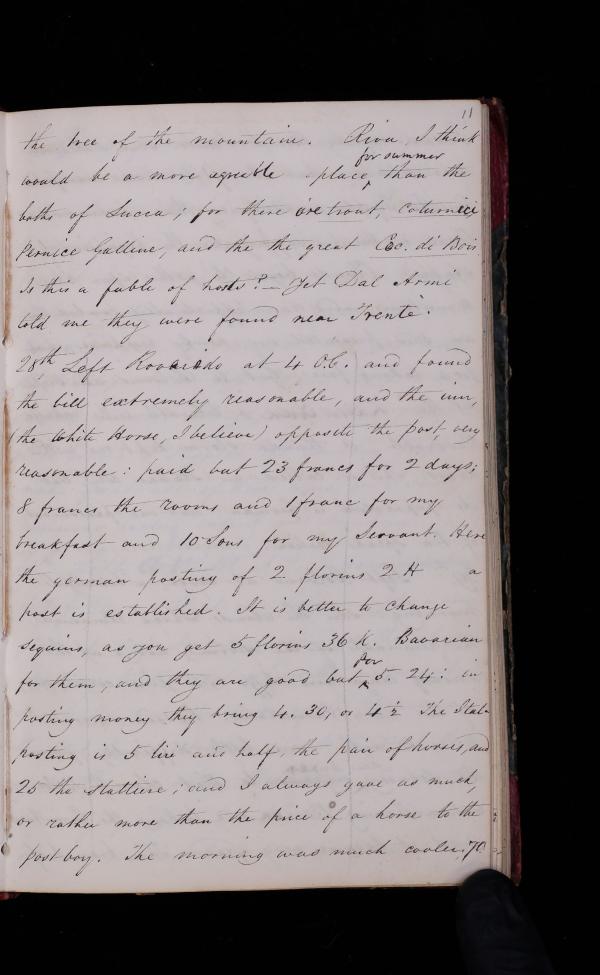 11
the tree of the mountain. Riva I think
for summer
would be a more agreeble place, than the
baths of Lucca; for there are trout, Coturnici,
Pernice Galline, and the the great Coc. di Bois.
Is this a fable of hosts? — Yet Dal Armi
told me they were found near Trente.
28th, Left Roveredo at 4 O.C. and found
the bill extremely reasonable, and the inn,
(the White Horse, I believe) opposite the post, very
reasonable: paid but 23 francs for 2 days;
8 francs the rooms and 1 franc for my
breakfast and 10 Sous for my Servant. Here
the german posting of 2 florins 2 H a
post is established. It is better to change
sequins, as you get 5 florins 36 K. Bavarian
for
for them, and they are good but 5. 24: in
posting money they bring 4. 30, or 4 1/2 The Ital-
posting is 5 lire and half the pair of horses, and
25 the stattiere; and I always gave as much,
or rather more than the price of a horse to the
post boy. The morning was much cooler, 70